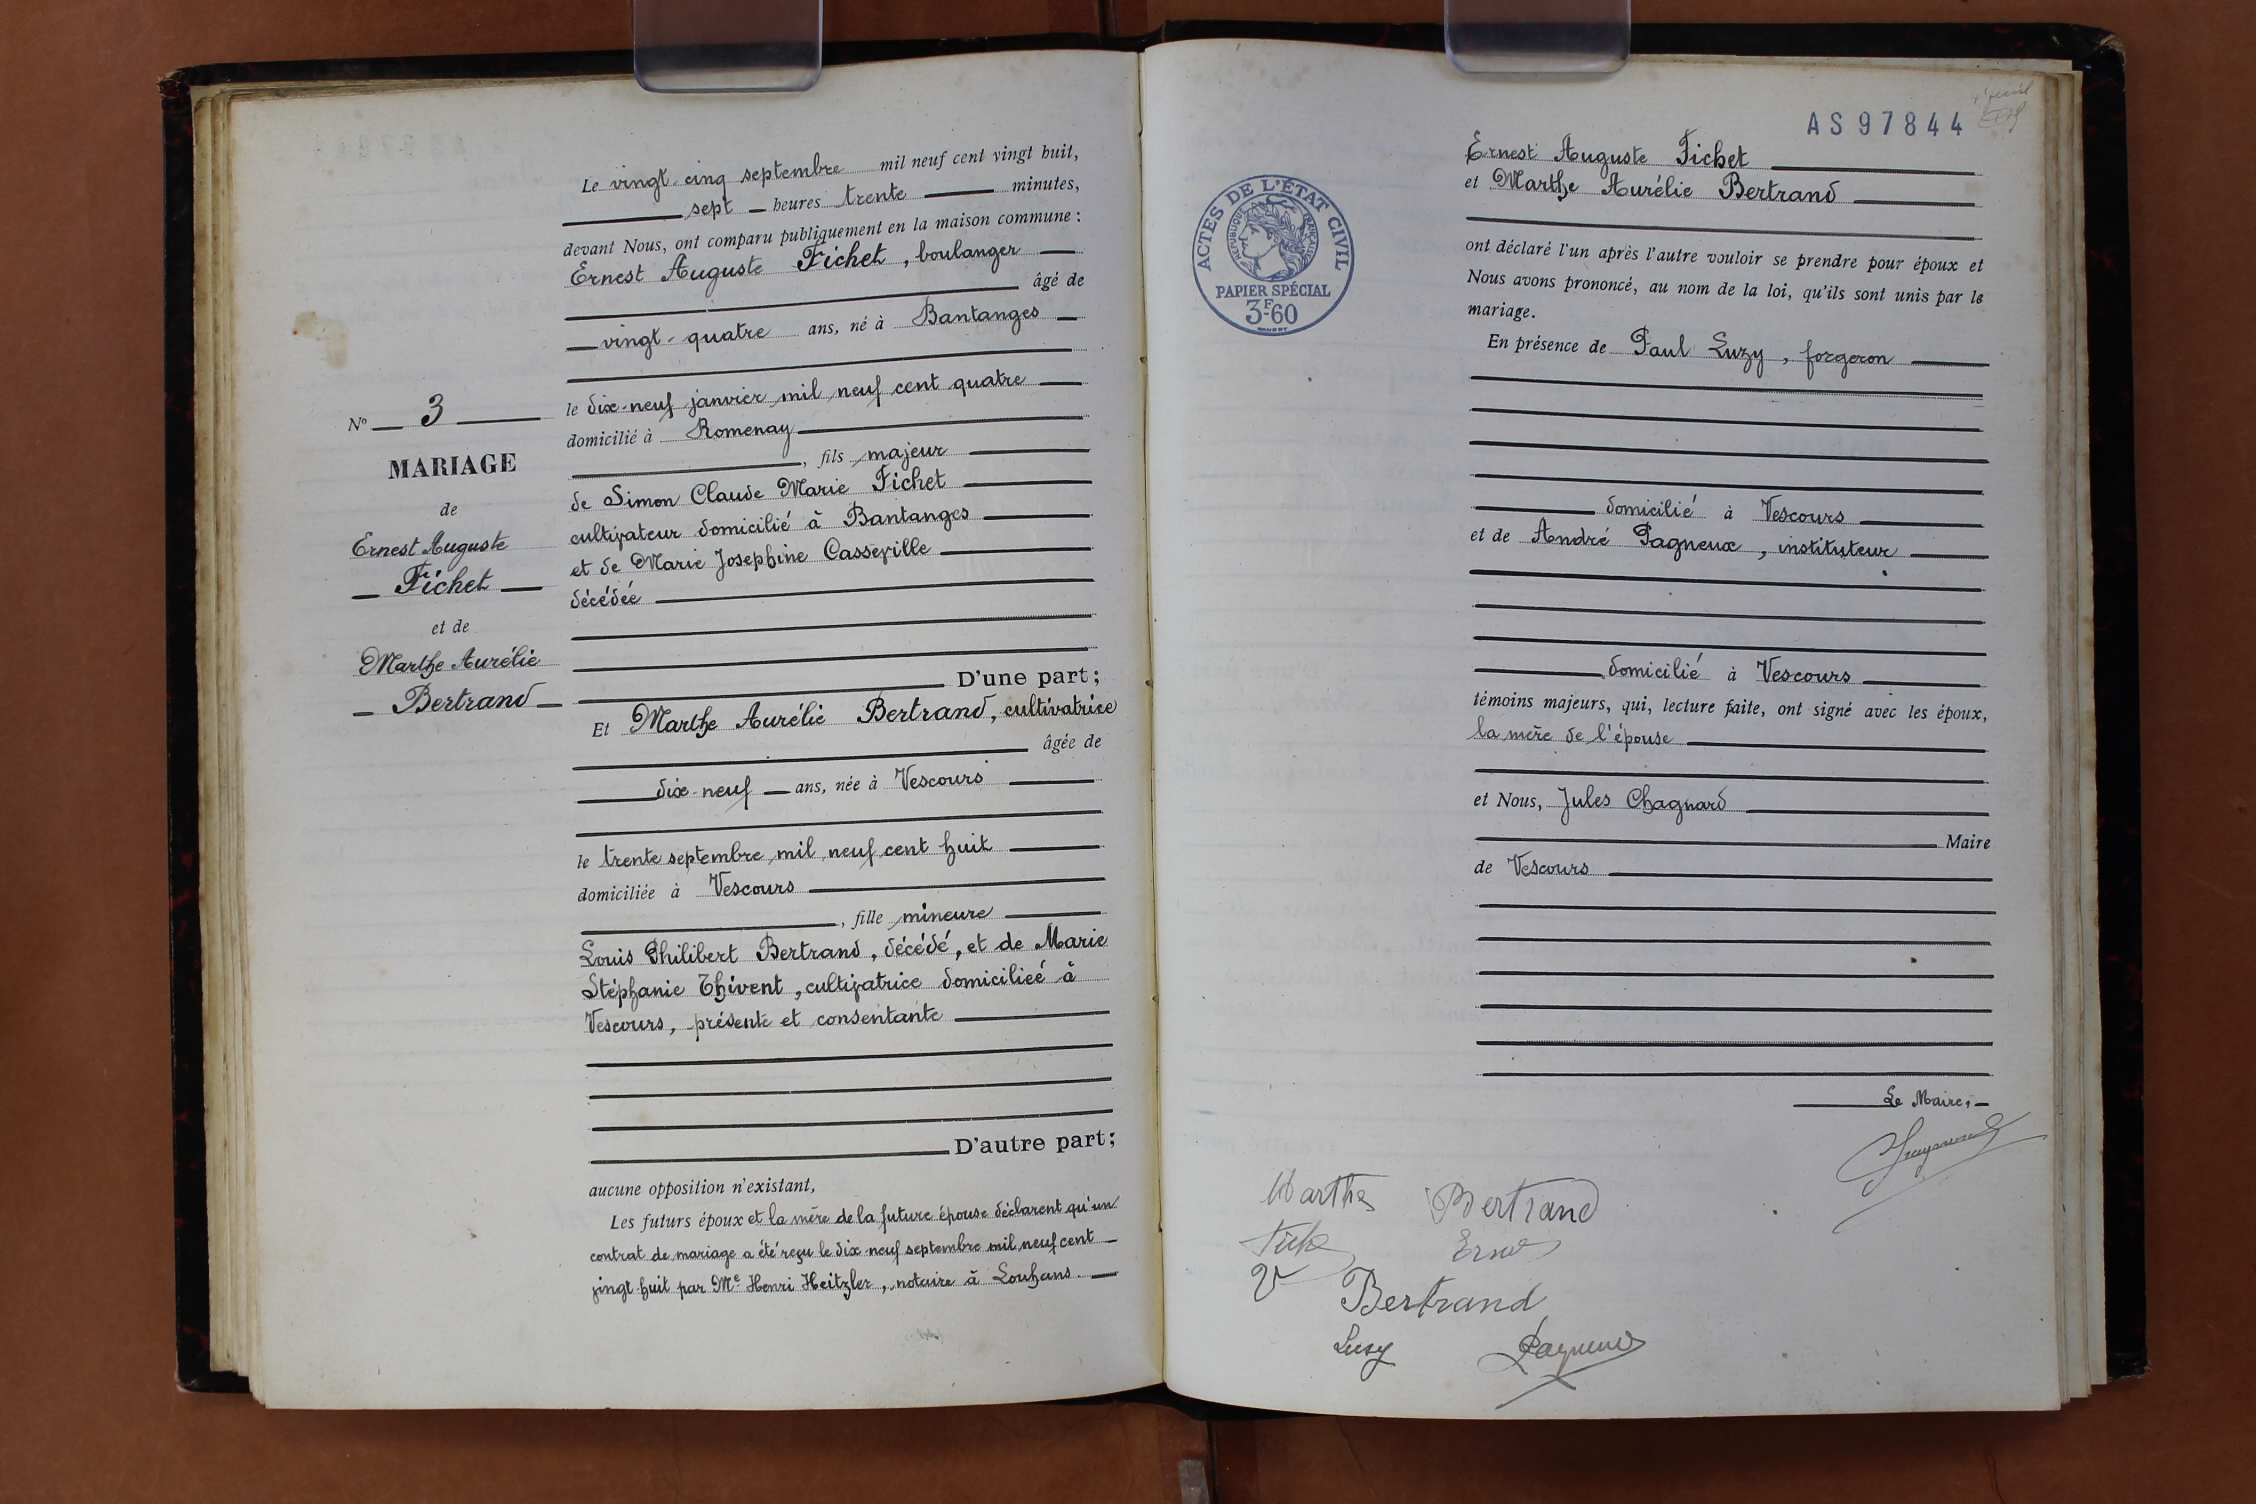 Le vingt-cinq septembre mil neuf cent vingt huit,
sept heures trente minutes,
devant Nous, ont comparu publiquement en la maison commune :
Ernest Auguste Fichet, boulanger
âgé de
vingt-quatre ans, né à Bantanges
le dix-neuf janvier mil neuf cent quatre
domicilié à Romenay
, fils majeur
de Simon Claude Marie Fichet
cultivateur domicilié à Bantanges
et de Marie Josephine Casseville
décédée
D'une part;
Et Marthe Aurélie Bertrand, cultivatrice
âgée de
dix-neuf ans, née à Vescours
le trente septembre mil neuf cent huit
domiciliée à Vescours
, fille mineure
Louis Philibert Bertrand, décédé, et de Marie
Stéphanie Thivent, cultivatrice domiciliée à
Vescours, présente et consentante
D'autre part;
aucune opposition n'existant,
Les futurs époux et la mère de la future épouse déclarent qu'un
contrat de mariage a été reçu le dix neuf septembre mil neuf cent
vingt-huit par Me Henri Heitzler, notaire à Louhans.
No 3
MARIAGE
de
Ernest Auguste
Fichet
et de
Marthe Aurélie
Bertrand
AS 97844
ACTES DE L'ÉTAT CIVIL
RÉPUBLIQUE FRANÇAISE
PAPIER SPÉCIAL
3F60
Ernest Auguste Fichet
et Marthe Aurélie Bertrand
ont déclaré l'un après l'autre vouloir se prendre pour époux et
Nous avons prononcé, au nom de la loi, qu'ils sont unis par le
mariage.
En présence de Paul Luzy, forgeron
domicilié à Vescours
et de André Pagneux, instituteur
domicilié à Vescours
témoins majeurs, qui, lecture faite, ont signé avec les époux,
la mère de l'épouse
et Nous, Jules Chagnard
Maire
de Vescours
Le Maire,
Marthe Bertrand
Bertrand
Luzy